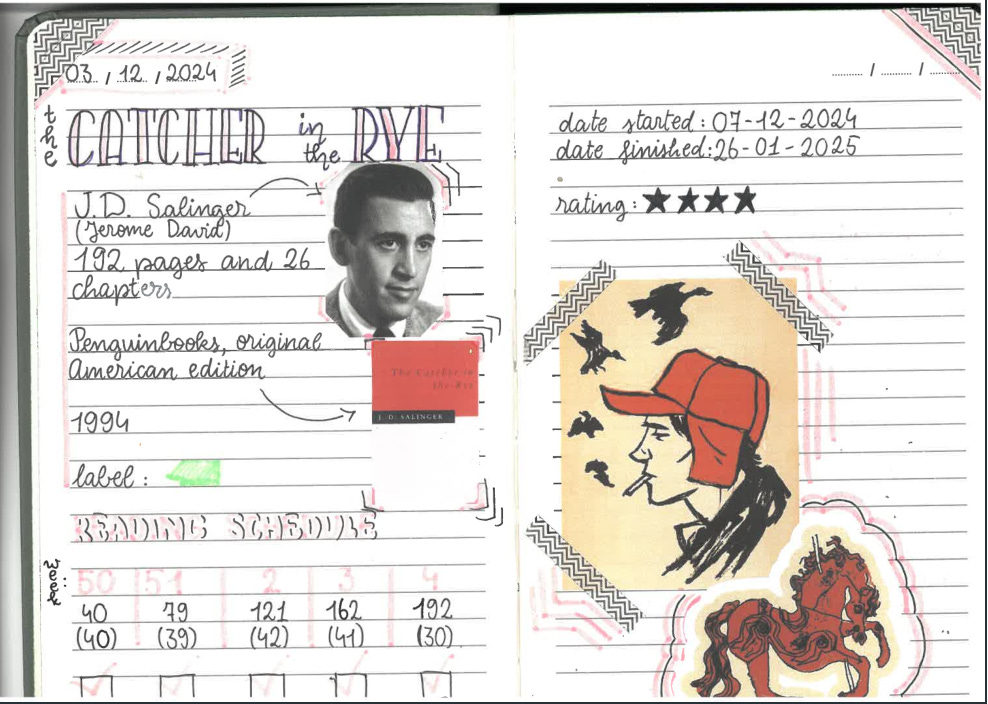 03 / 12 / 2024
the CATCHER in the RYE
J.D. Salinger
(Jerome David)
192 pages and 26
chapters
Penguinbooks, original
American edition
The Catcher in
the Rye
J. D. SALINGER
1994
label :
READING SCHEDULE
week:
50 51 2 3 4
40 79 121 162 192
(40) (39) (42) (41) (30)
/ /
date started: 07-12-2024
date finished: 26-01-2025
rating: ★★★★